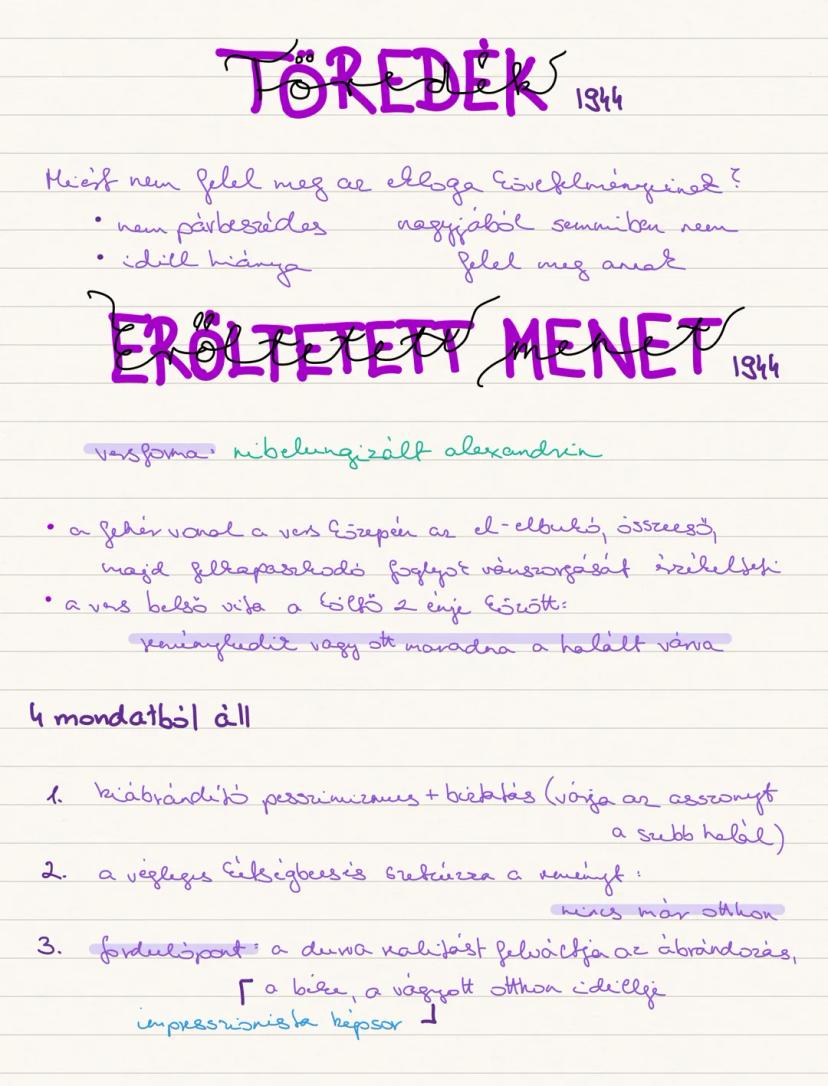 TÖREDÉK 1944
Miért nem felel meg az ekloga követelményeinek?
• nem párbeszédes nagyjából semmiben nem
• idill hiánya felel meg annak
ERŐLTETETT MENET 1944
versforma: nibelungizált alexandrin
• a fehér vonal a vers közepén az el-elbukó, összeeső,
majd felkapaszkodó foglyok vánszorgását érzékelteti
• a vers belső vita a költő 2 énje között:
reménykedik vagy ott maradna a halált várva
4 mondatból áll
1. kiábrándító pesszimizmus + biztatás (várja az asszonyt
a szebb halál)
2. a végleges kétségbeesés szétzúzza a reményt:
nincs már otthon
3. fordulópont: a durva realitást felváltja az ábrándozás,
a béke, a vágyott otthon idillje
impresszionista képsor